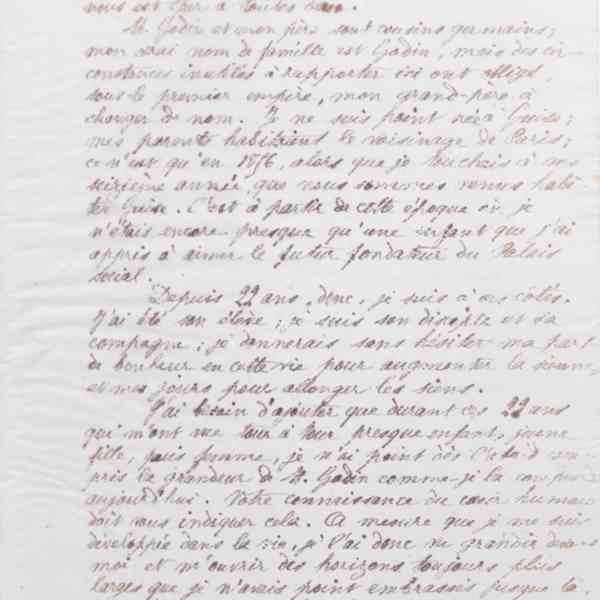 vous est cher à toutes deux.
M. Godin et mon père sont cousins germains;
mon vrai nom de famille est Godin, mais des cir-
constances inutiles à rapporter ici ont obligé,
sous le premier empire, mon grand-père à
changer de nom. Je ne suis point née à Guise;
mes parents habitaient le voisinage de Paris;
ce n'est qu'en 1856, alors que je touchais à ma
seizième année, que nous sommes venus habi-
ter Guise. C'est à partir de cette époque où je
n'étais encore presque qu'une enfant que j'ai
appris à aimer le futur fondateur du Palais
social.
Depuis 22 ans, donc, je suis à ses côtés.
J'ai été son élève; je suis son disciple et sa
compagne; je donnerais sans hésiter ma part
de bonheur en cette vie pour augmenter la sienne,
et mes jours pour allonger les siens.
J'ai besoin d'ajouter que durant ces 22 ans
qui m'ont vue tour à tour presque enfant, jeune
fille, puis femme, je n'ai point dès l'abord com-
pris la grandeur de M. Godin comme je la comprends
aujourd'hui. Votre connaissance du cœur humain
doit vous indiquer cela. A mesure que je me suis
développée dans la vie, je l'ai donc vu grandir devant
moi et m'ouvrir des horizons toujours plus
larges que je n'avais point embrassés jusque là.